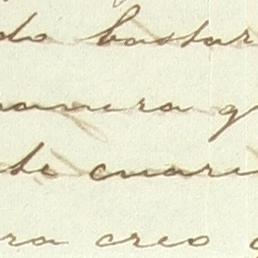 do bastar
manera q
te cuare
ra creo